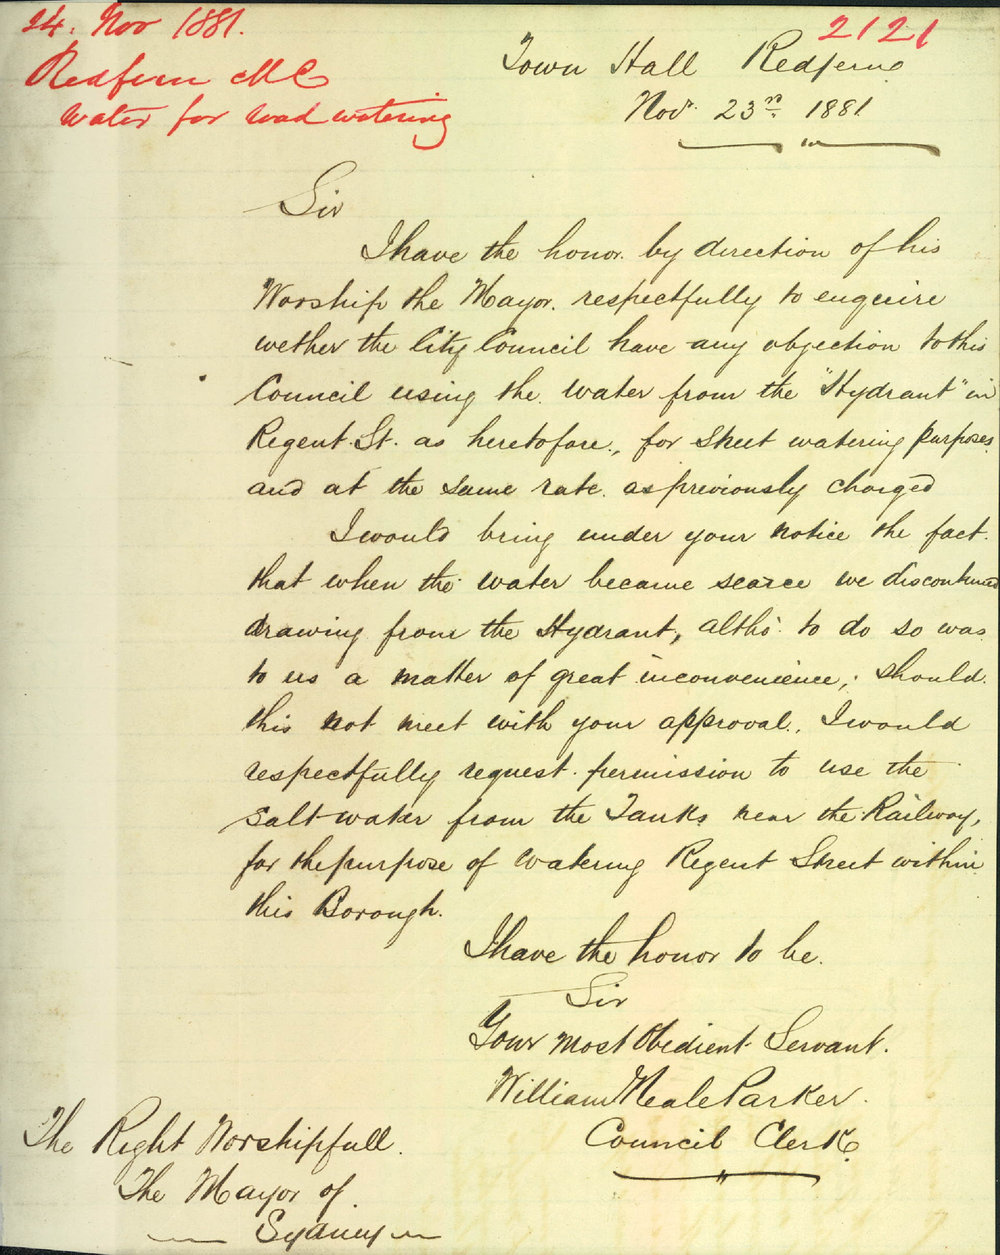 24. Nov 1881.
Redfern M C
Water for road watering
2121
Town Hall Redfern
Nov. 23rd. 1881
Sir
I have the honor. by direction of his
Worship the Mayor. respectfully to enquire
wether the City Council have any objection to this
Council using the water from the "Hydrant" in
Regent. St. as heretofore., for Street watering purposes.
and at the same rate. as previously charged
I would bring under your notice the fact.
that when the water became scarce we discontinued
drawing from the Hydrant, altho' to do so was.
to us a matter of great inconvenience; should.
this not meet with your approval., I would
respectfully request. permission to use the
Salt water from the Tanks near the Railway,
for the purpose of watering Regent Street within
this Borough.
I have the honor to be.
Sir
Your most Obedient Servant.
William Neale Parker.
Council Clerk.
The Right Worshipfull.
The Mayor of.
Sydney